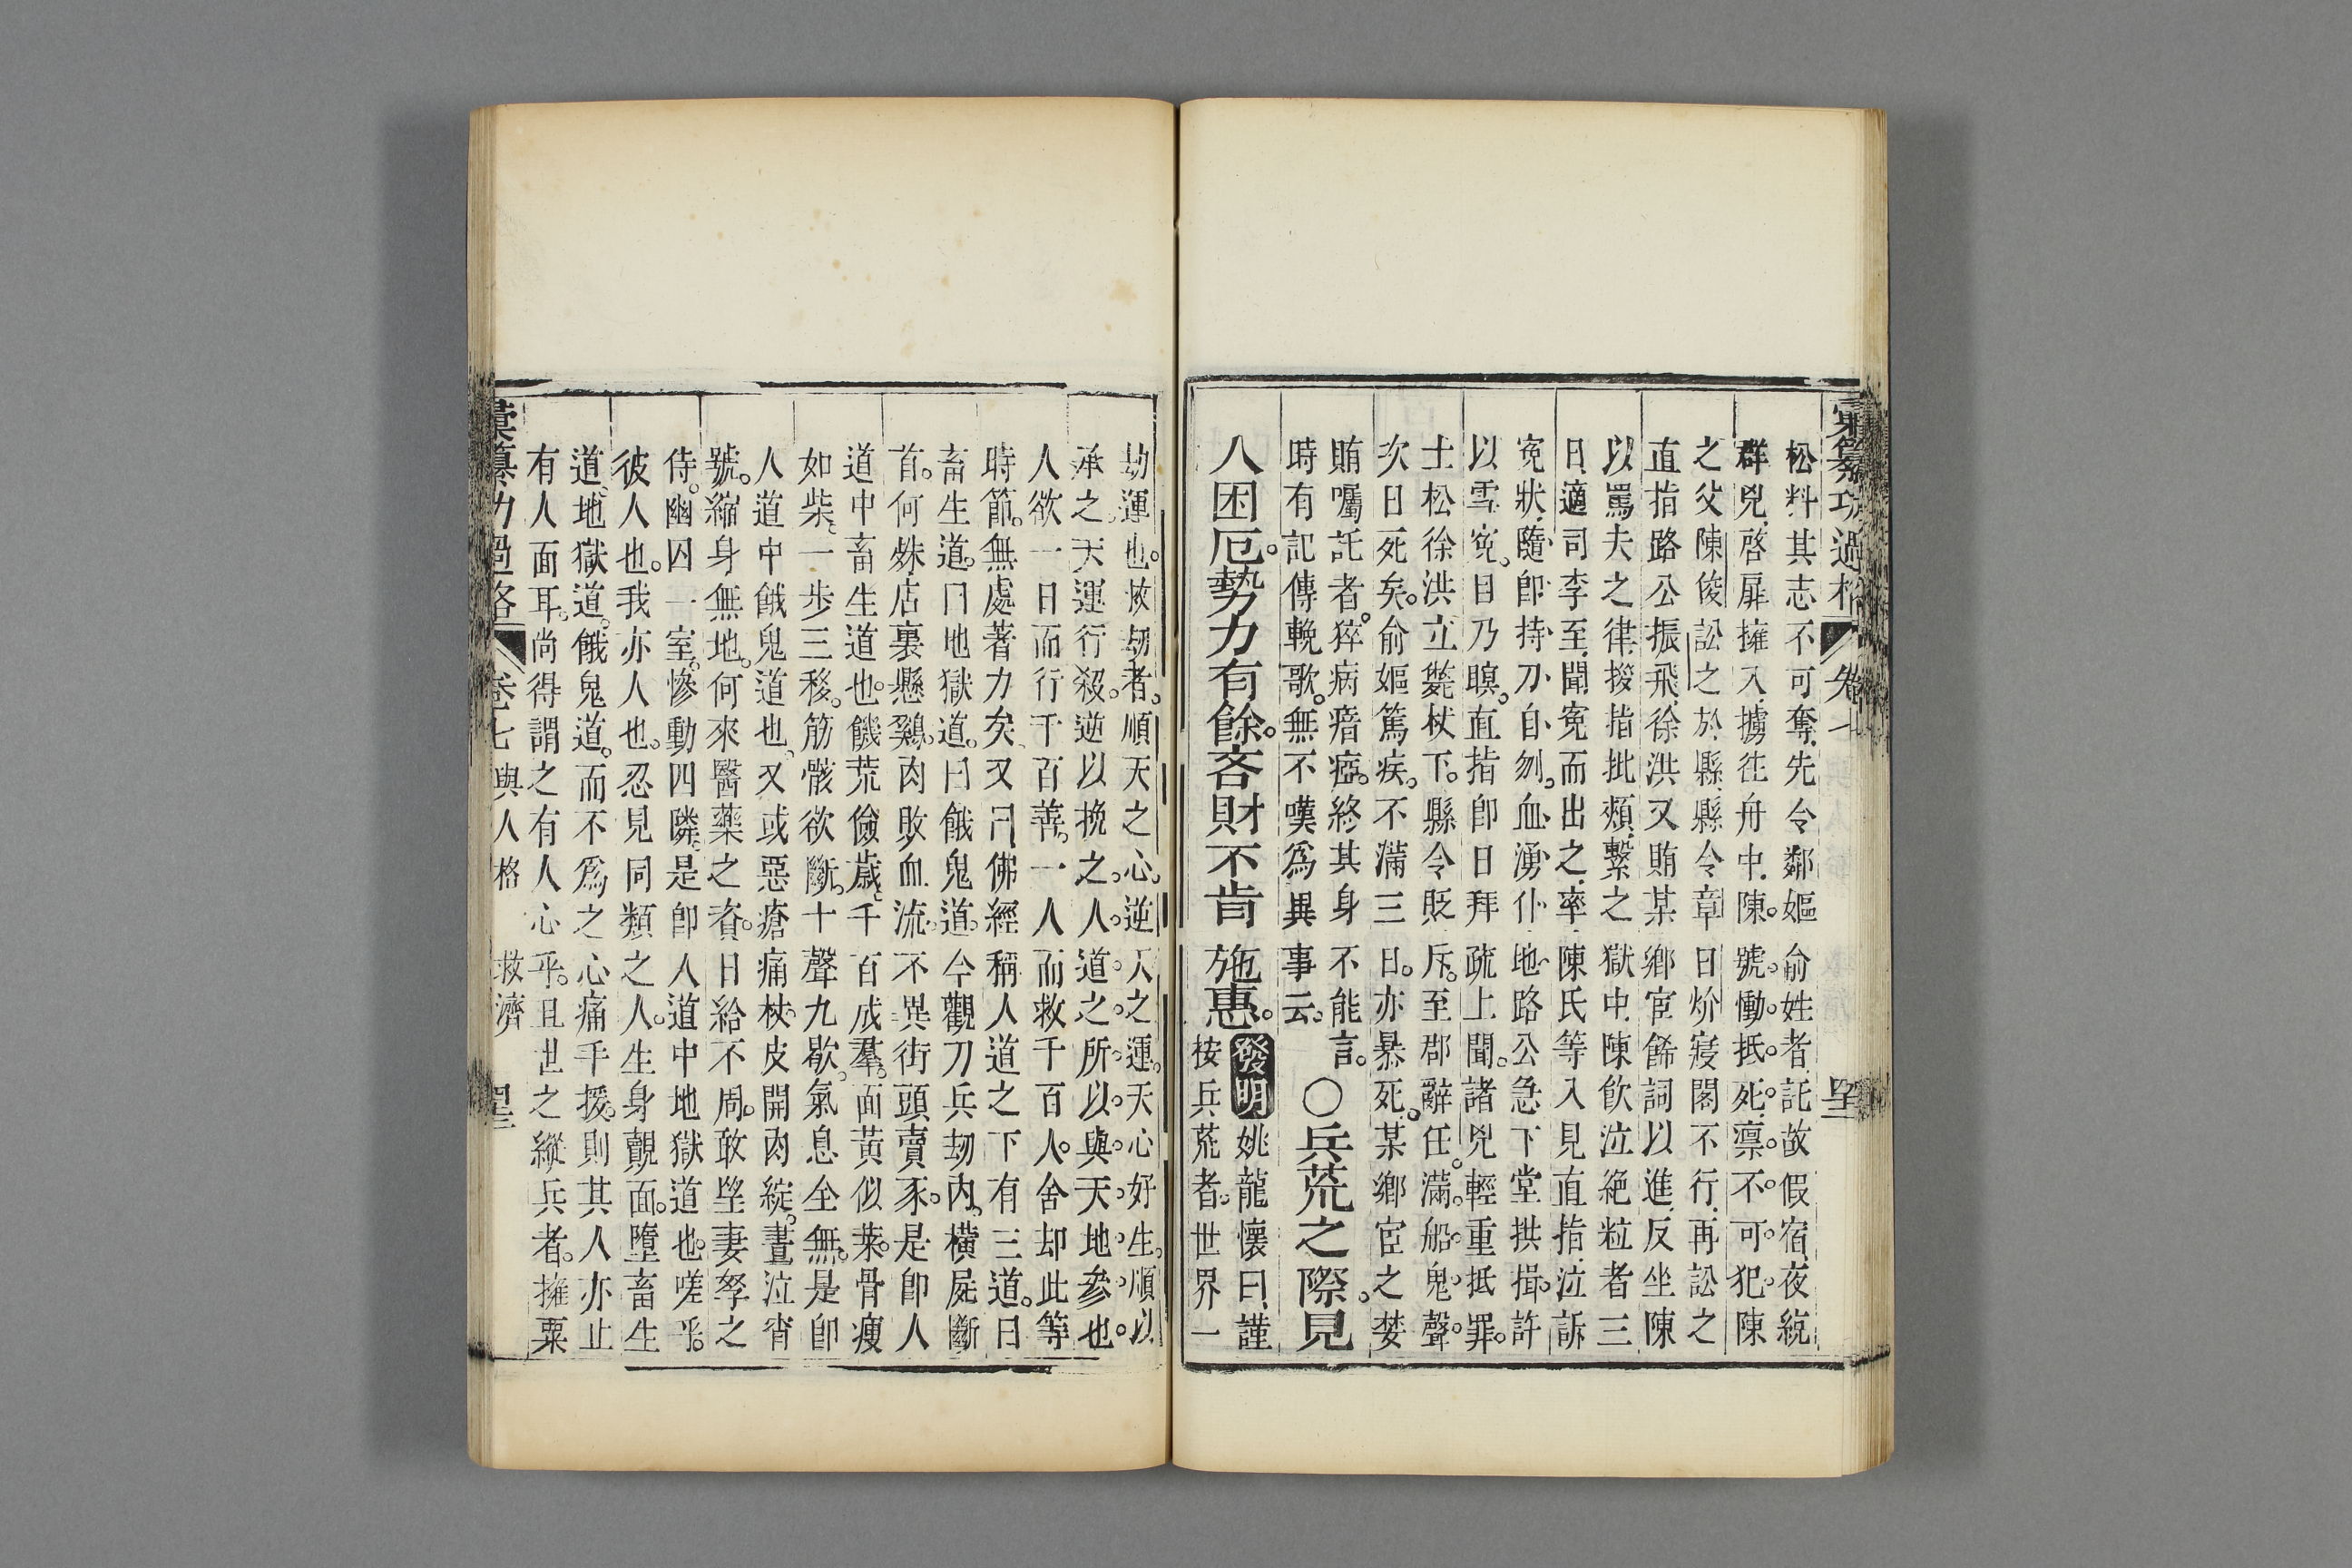 彙纂功過格 卷七
松料其志不可奪先令鄰嫗俞姓者託故假宿夜統
群兇啓扉擁入擄往舟中陳號慟抵死凜不可犯陳
之父陳俊訟之於縣縣令章日炌寢閣不行再訟之
直指路公振飛徐洪又賄某鄉宦餙詞以進反坐陳
以罵夫之律拶指批頰繫之獄中陳飲泣絕粒者三
日適司李至聞寃而出之率陳氏等入見直指泣訴
寃狀隨即持刀自刎血湧仆地路公急下堂拱揖許
以雪寃目乃瞑直指即日拜疏上聞諸兇輕重抵罪
土松徐洪立斃杖下縣令貶斥至郡辭任滿船鬼聲
次日死矣俞嫗篤疾不滿三日亦暴死某鄉宦之婪
賄囑託者猝病瘖瘂終其身不能言
時有記傳輓歌無不嘆爲異事云
〇兵荒之際見
人困厄勢力有餘吝財不肯施惠
發明姚龍懷曰謹
按兵荒者世界一
劫運也救劫者順天之心逆天之運天心好生順以
承之天運行殺逆以挽之人道之所以與天地參也
人欲一日而行千百善一人而救千百人舍却此等
時節無處著力矣又曰佛經稱人道之下有三道曰
畜生道曰地獄道曰餓鬼道今觀刀兵劫內橫屍斷
首何殊店裏懸鷄肉敗血流不異街頭賣豕是卽人
道中畜生道也饑荒儉歳千百成羣面黃似菜骨瘦
如柴一步三移筋骸欲斷十聲九歇氣息全無是卽
人道中餓鬼道也又或惡瘡痛杖皮開肉綻晝泣宵
號縮身無地何來醫藥之資日給不周敢望妻孥之
侍幽囚一室慘動四隣是卽人道中地獄道也嗟乎
彼人也我亦人也忍見同類之人生身覿面墮畜生
道地獄道餓鬼道而不爲之心痛手援則其人亦止
有人面耳尚得謂之有人心乎且世之縱兵者擁粟
彙纂功過格 卷七 與人格 救濟